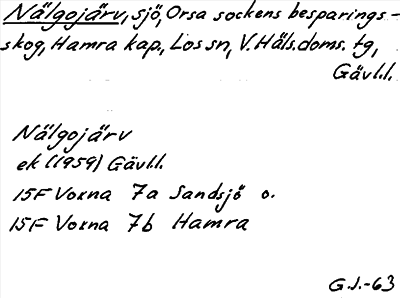 Nälgojärv, sjö, Orsa sockens besparings-
skog, Hamra kap, Los sn, V.Häls.doms. tg,
Gävl.l.
Nälgojärv
ek (1959) Gävl.l.
15F Voxna 7a Sandsjö o.
15F Voxna 7b Hamra
G.J.-63